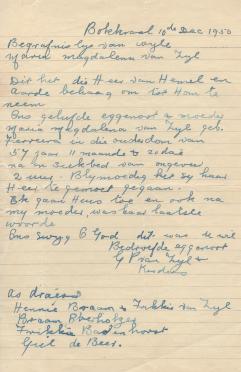 Bokkraal 10de Dec 1950
Begrafnis lys van wyle
Maria Magdalena van Zyl
Dit het die Heer van Hemel en
Aarde behaag om tot Hom te
neem
Ons geliefde eggenoot & moeder
Maria Magdalena van Zyl geb.
Ferreira in die ouderdom van
57 jaar 11 maande & 20 dae
na 'n siekbed van ongeveer
2 uur. Blymoedig het sy haar
Heer te gemoet gegaan.
Ek gaan Heus toe en ook na
my moeder was haar laatste
woorde
Ons swyg O God dit was U wil
Bedroefde eggenoot
G P van Zyl &
Kinders
As draers
Hennie Braam & Frikkie van Zyl
Braam Oberholzer
Frikkie Badenhorst
Giel de Beer.